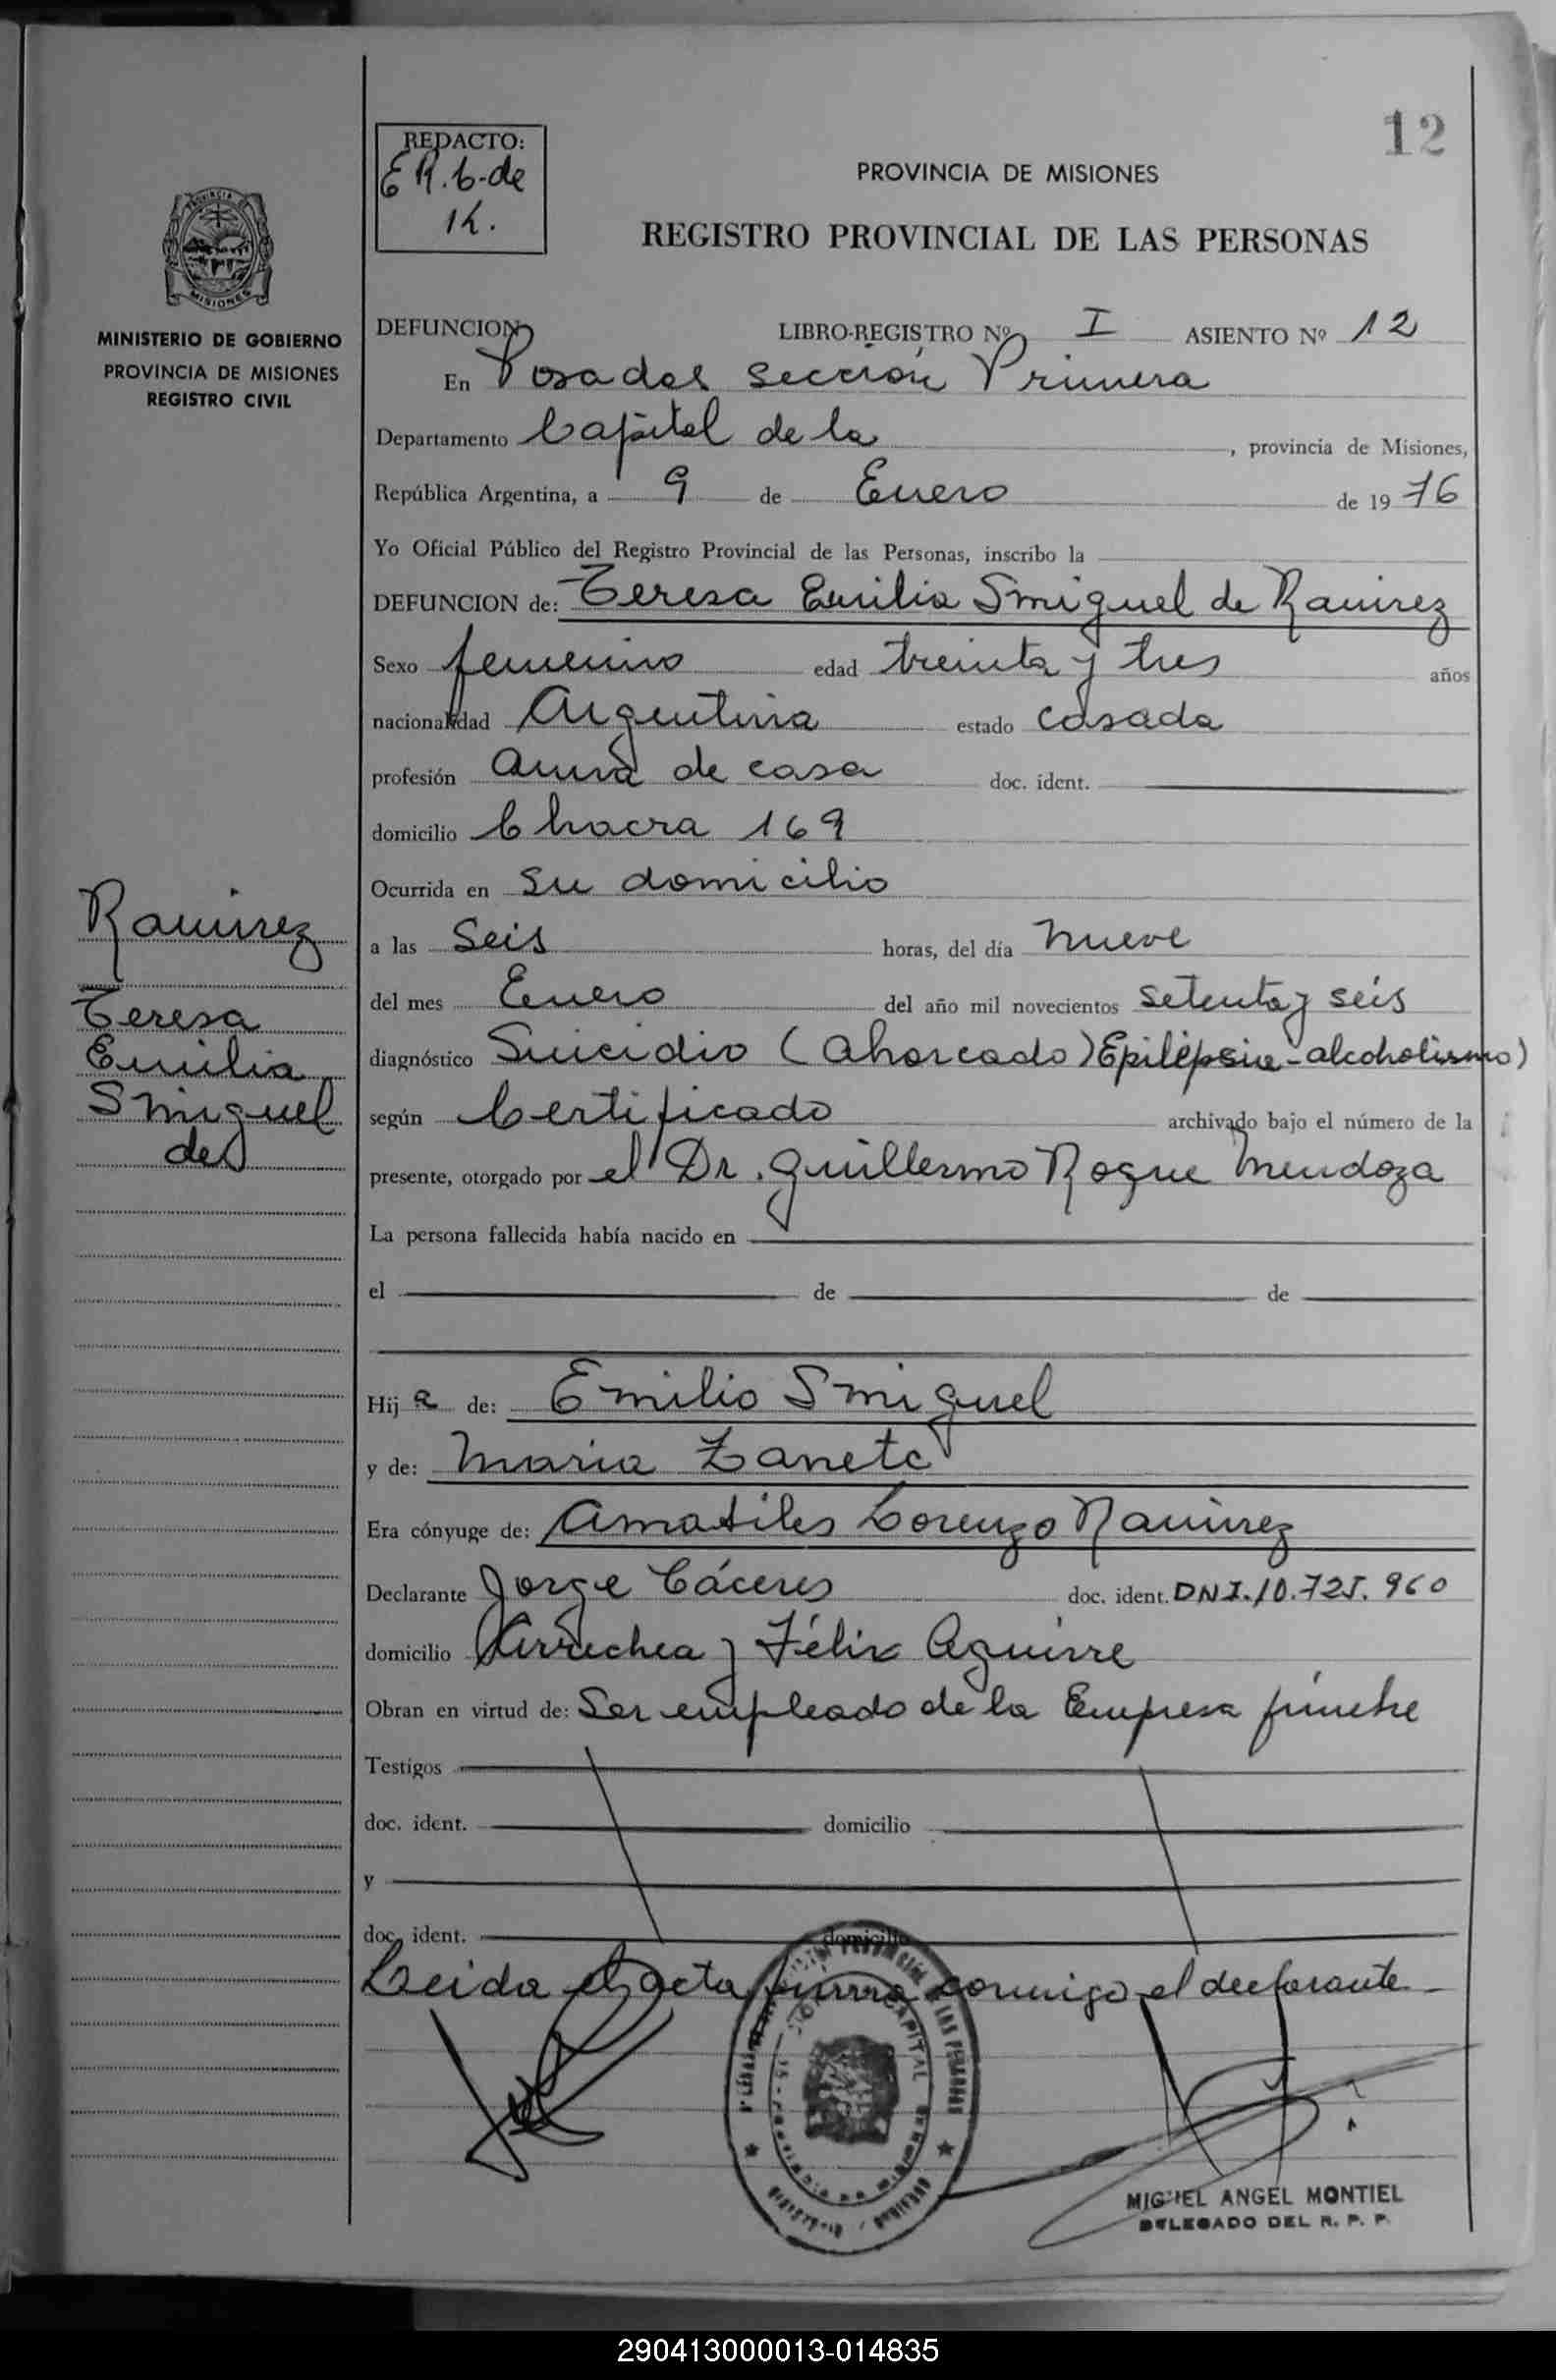 12
REDACTO:
E R. b. de
K.
PROVINCIA DE MISIONES
REGISTRO PROVINCIAL DE LAS PERSONAS
MISIONES
MINISTERIO DE GOBIERNO
PROVINCIA DE MISIONES
REGISTRO CIVIL
DEFUNCION LIBRO-REGISTRO Nº I ASIENTO Nº 12
En Posadas sección Primera
Departamento Capital de la , provincia de Misiones,
República Argentina, a 9 de Enero de 1976
Yo Oficial Público del Registro Provincial de las Personas, inscribo la
DEFUNCION de: Teresa Emilia Smiguel de Ramirez
Sexo femenino edad treinta y tres años
nacionalidad Argentina estado casada
profesión ama de casa doc. ident.
domicilio Chacra 169
Ocurrida en su domicilio
a las Seis horas, del día nueve
del mes Enero del año mil novecientos setenta y seis
diagnóstico Suicidio (ahorcado) Epilepsia-alcoholismo)
según Certificado archivado bajo el número de la
presente, otorgado por el Dr. Guillermo Roque Mendoza
La persona fallecida había nacido en
el de de
Hij a de: Emilio Smiguel
y de: Maria Zanete
Era cónyuge de: Amatiles Lorenzo Ramirez
Declarante Jorge Cáceres doc. ident. DNI. 10.725.960
domicilio Arrechea y Félix Aguirre
Obran en virtud de: Ser empleado de la Empresa fúnebre
Testigos
doc. ident. domicilio
y
doc. ident. domicilio
Leida el acta firma conmigo el declarante
Ramirez
Teresa
Emilia
Smiguel
de
CAPITAL
MIGUEL ANGEL MONTIEL
DELEGADO DEL R. P. P.
290413000013-014835